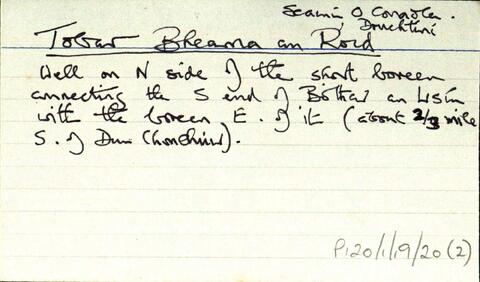 Seamus O Conaola.
Druchtuni
Tobar Bhearna an Roid
Well on N side of the short boreen
connecting the S end of Bóthar an
with the boreen E. of it (about 2/3 mile
S. of Dun Chonchuir).
P120/1/19/20(2)